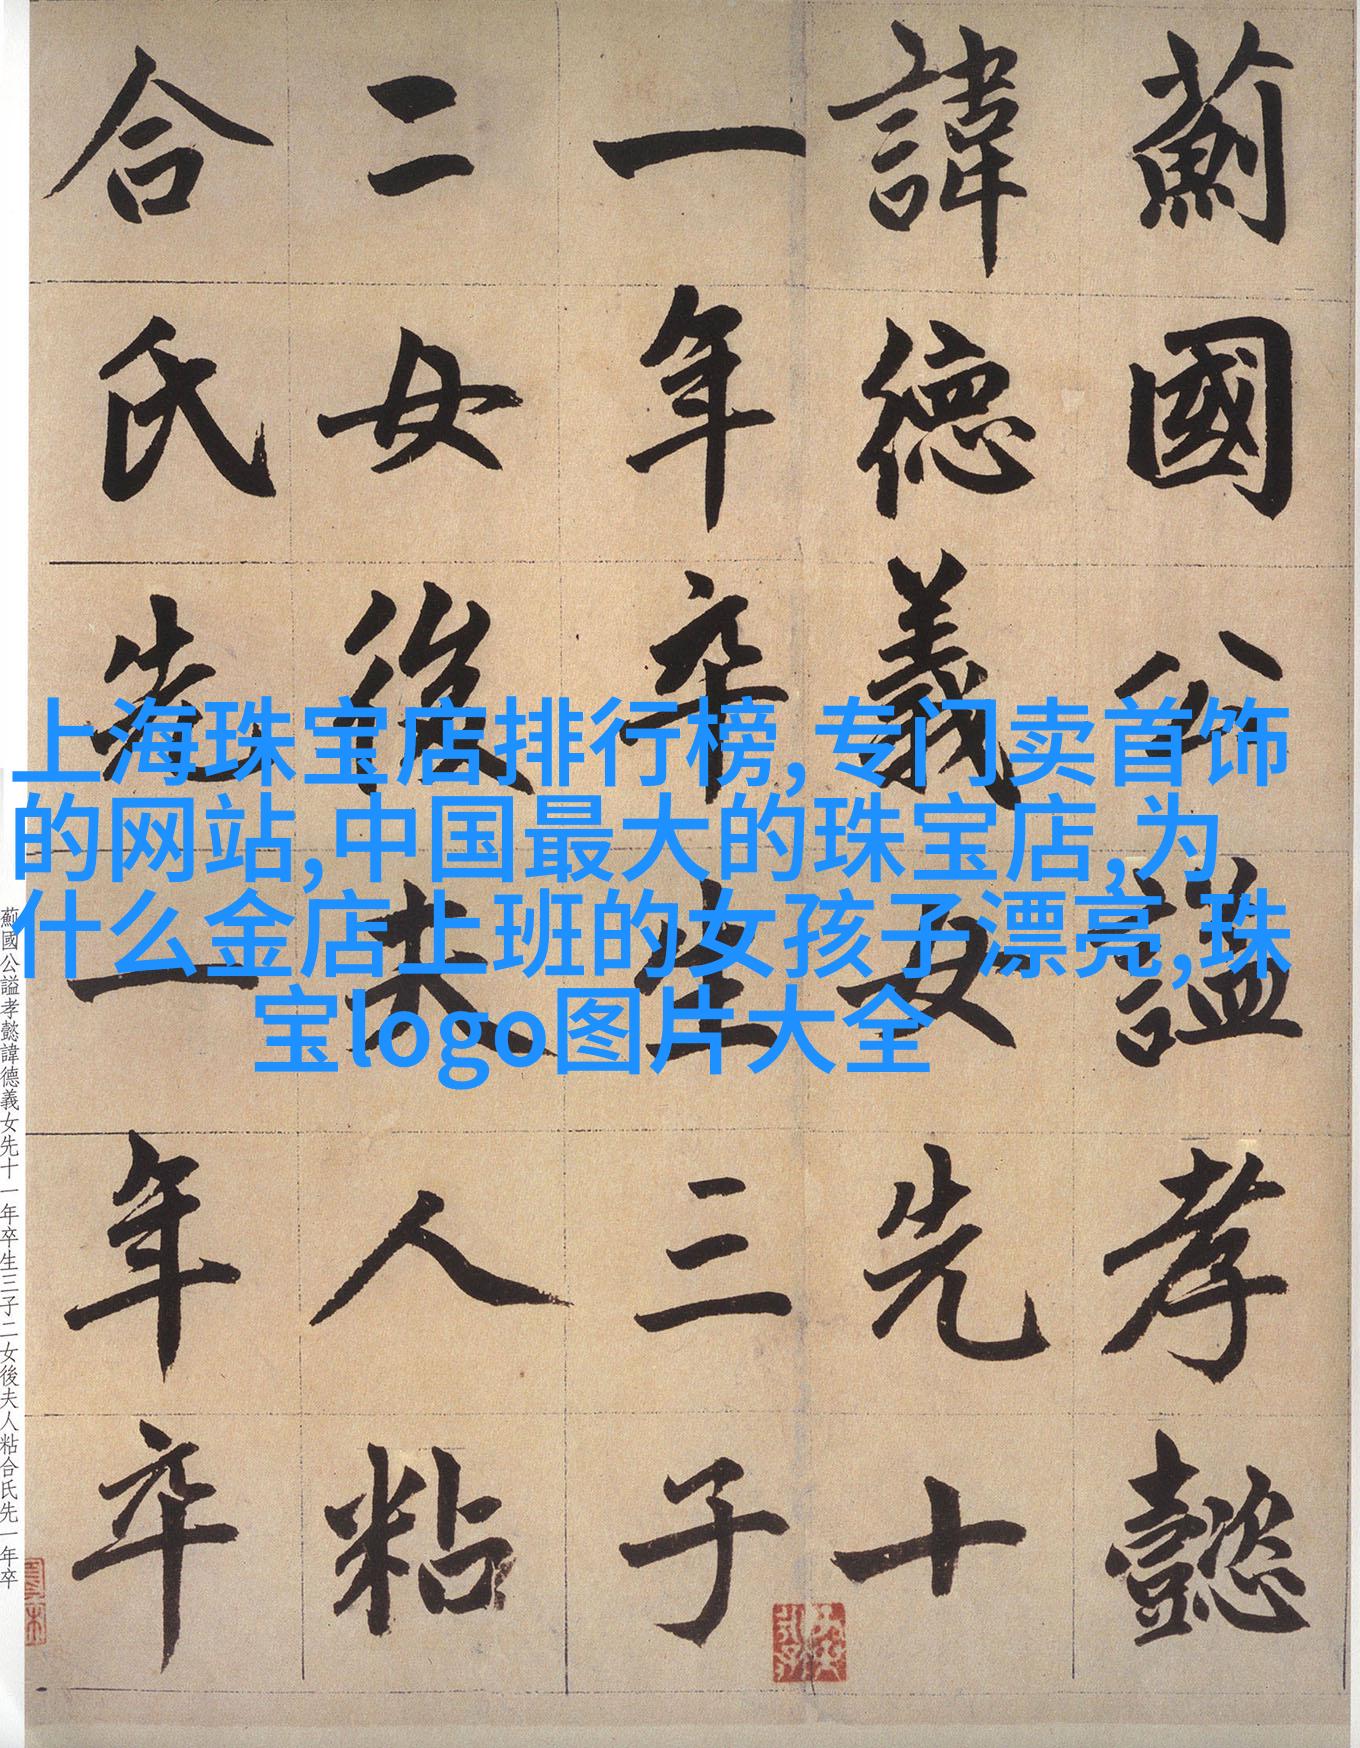 薊國公謚孝懿
諱德義女先十
一年卒生三子
二女後夫人粘
合氏先一年卒
上海珠宝店排行榜,专门卖首饰
的网站,中国最大的珠宝店,为
什么金店上班的女孩子漂亮,珠
宝logo图片大全
薊國公謚孝懿諱德義女先十一年卒生三子二女後夫人粘合氏先一年卒